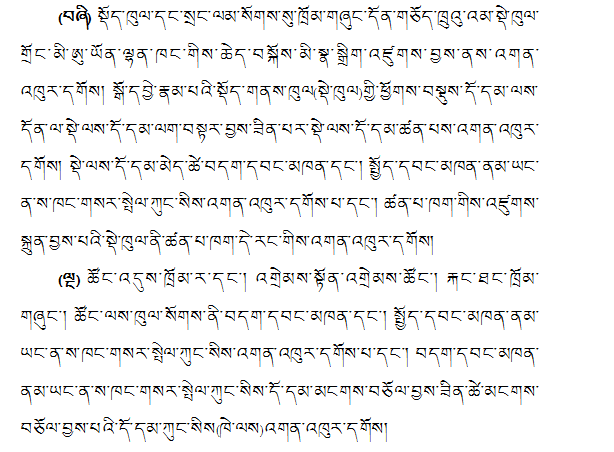 (བཞི) སྡོད་ཁུལ་དང་སྲང་ལམ་སོགས་སུ་ཁྲོམ་གཞུང་དོན་གཅོད་ཁྲུའུ་འམ་སྡེ་ཁུལ་
གྲོང་མི་ཨུ་ཡོན་ལྷན་ཁང་གིས་ཆེད་བསྐོས་མི་སྣ་སྒྲིག་འཛུགས་བྱས་ནས་འགན་
འཁུར་དགོས། སྒོ་དབྱེ་རྣམ་པའི་སྡོད་གནས་ཁུལ(སྡེ་ཁུལ)གྱི་ཕྱོགས་བསྡུས་དོ་དམ་ལས་
དོན་ལ་སྡེ་ལས་དོ་དམ་ལག་བསྟར་བྱས་ཟིན་པར་སྡེ་ལས་དོ་དམ་ཚན་པས་འགན་འཁུར་
དགོས། སྡེ་ལས་དོ་དམ་མེད་ཚེ་བདག་དབང་མཁན་དང་། སྤྱོད་དབང་མཁན་ནམ་ཡང་
ན་ས་ཁང་གསར་སྤེལ་ཀུང་སིས་འགན་འཁུར་དགོས་པ་དང་། ཚན་པ་ཁག་གིས་འཛུགས་
སྐྲུན་བྱས་པའི་སྡེ་ཁུལ་ནི་ཚན་པ་ཁག་དེ་རང་གིས་འགན་འཁུར་དགོས།
(ལྔ) ཚོང་འདུས་ཁྲོམ་ར་དང་། འགྲེམས་སྟོན་འགྲེམས་ཚོང་། རྐང་ཐང་ཁྲོམ་
གཞུང་། ཚོང་ལས་ཁུལ་སོགས་ནི་བདག་དབང་མཁན་དང་། སྤྱོད་དབང་མཁན་ནམ་
ཡང་ན་ས་ཁང་གསར་སྤེལ་ཀུང་སིས་འགན་འཁུར་དགོས་པ་དང་། བདག་དབང་མཁན་
ནམ་ཡང་ན་ས་ཁང་གསར་སྤེལ་ཀུང་སིས་དོ་དམ་མངགས་བཅོལ་བྱས་ཟིན་ཚེ་མངགས་
བཅོལ་བྱས་པའི་དོ་དམ་ཀུང་སིས(ཁེ་ལས)འགན་འཁུར་དགོས།